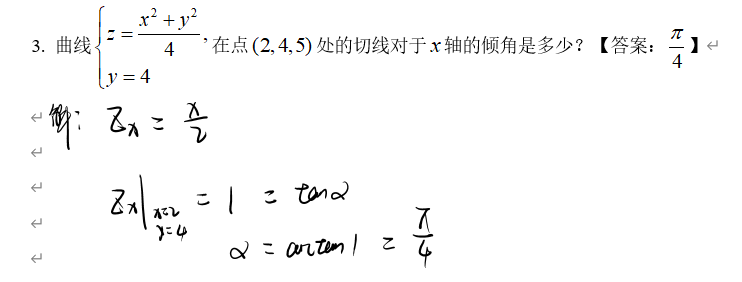 3. 曲线 { z = (x² + y²)/4, y = 4 , 在点 (2,4,5) 处的切线对于 x 轴的倾角是多少？【答案：π/4】↵
↵ 解： Zx = x/2
↵
↵ Zx|x=2 y=4 = 1 = tanα
↵
↵ α = arctan1 = π/4